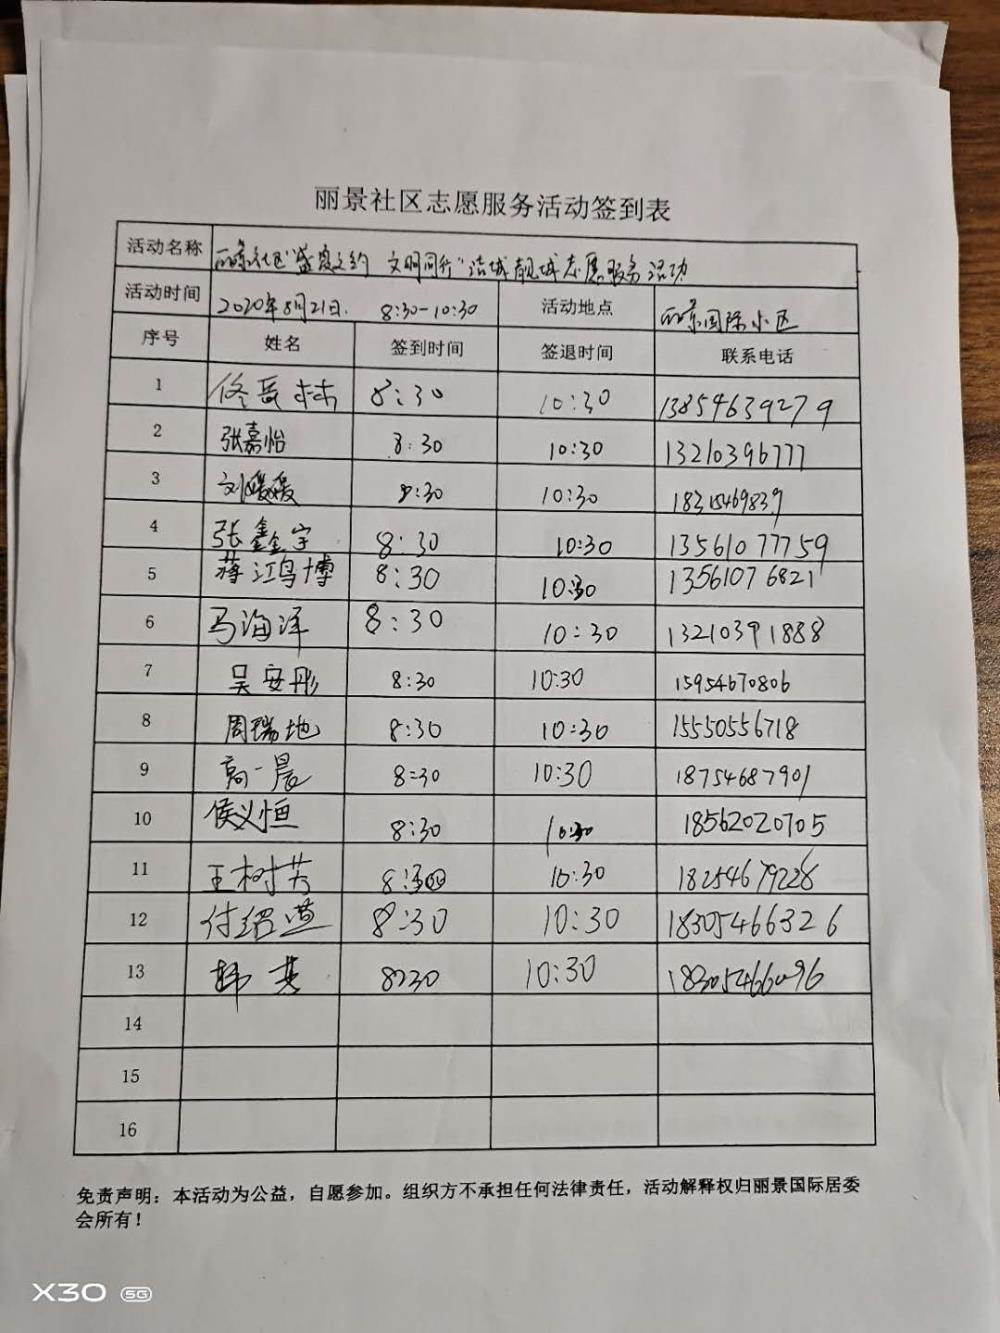 丽景社区志愿服务活动签到表
活动名称 丽景社区"盛夏之约 文明同行"洁城靓城志愿服务活动
活动时间 2020年8月21日. 8:30-10:30 活动地点 丽景国际小区
序号 姓名 签到时间 签退时间 联系电话
1 佟 林 8:30 10:30 13854639279
2 张嘉怡 8:30 10:30 13210396777
3 刘媛媛 8:30 10:30 18315469839
4 张鑫宇 8:30 10:30 13561077759
5 蒋江鸿博 8:30 10:30 13561076821
6 马海洋 8:30 10:30 13210391888
7 吴安彤 8:30 10:30 15954670806
8 周瑞地 8:30 10:30 15550556718
9 高一晨 8:30 10:30 18754687901
10 侯义恒 8:30 10:30 18562020705
11 王树芳 8:30 10:30 18254679228
12 付绍 8:30 10:30 18305466326
13 韩 8:30 10:30 18305466096
14
15
16
免责声明：本活动为公益，自愿参加。组织方不承担任何法律责任，活动解释权归丽景国际居委
会所有！
X30 5G